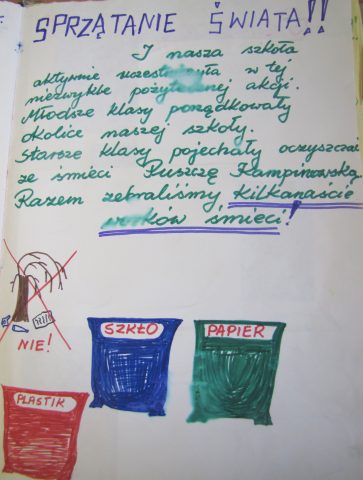 SPRZĄTANIE ŚWIATA!!
I nasza szkoła
aktywnie uczestniczyła w tej
niezwykle pożytecznej akcji.
Młodsze klasy porządkowały
okolice naszej szkoły.
Starsze klasy pojechały oczyszczać
ze śmieci Puszczę Kampinowską.
Razem zebraliśmy kilkanaście
worków śmieci!
NIE!
SZKŁO
PAPIER
PLASTIK